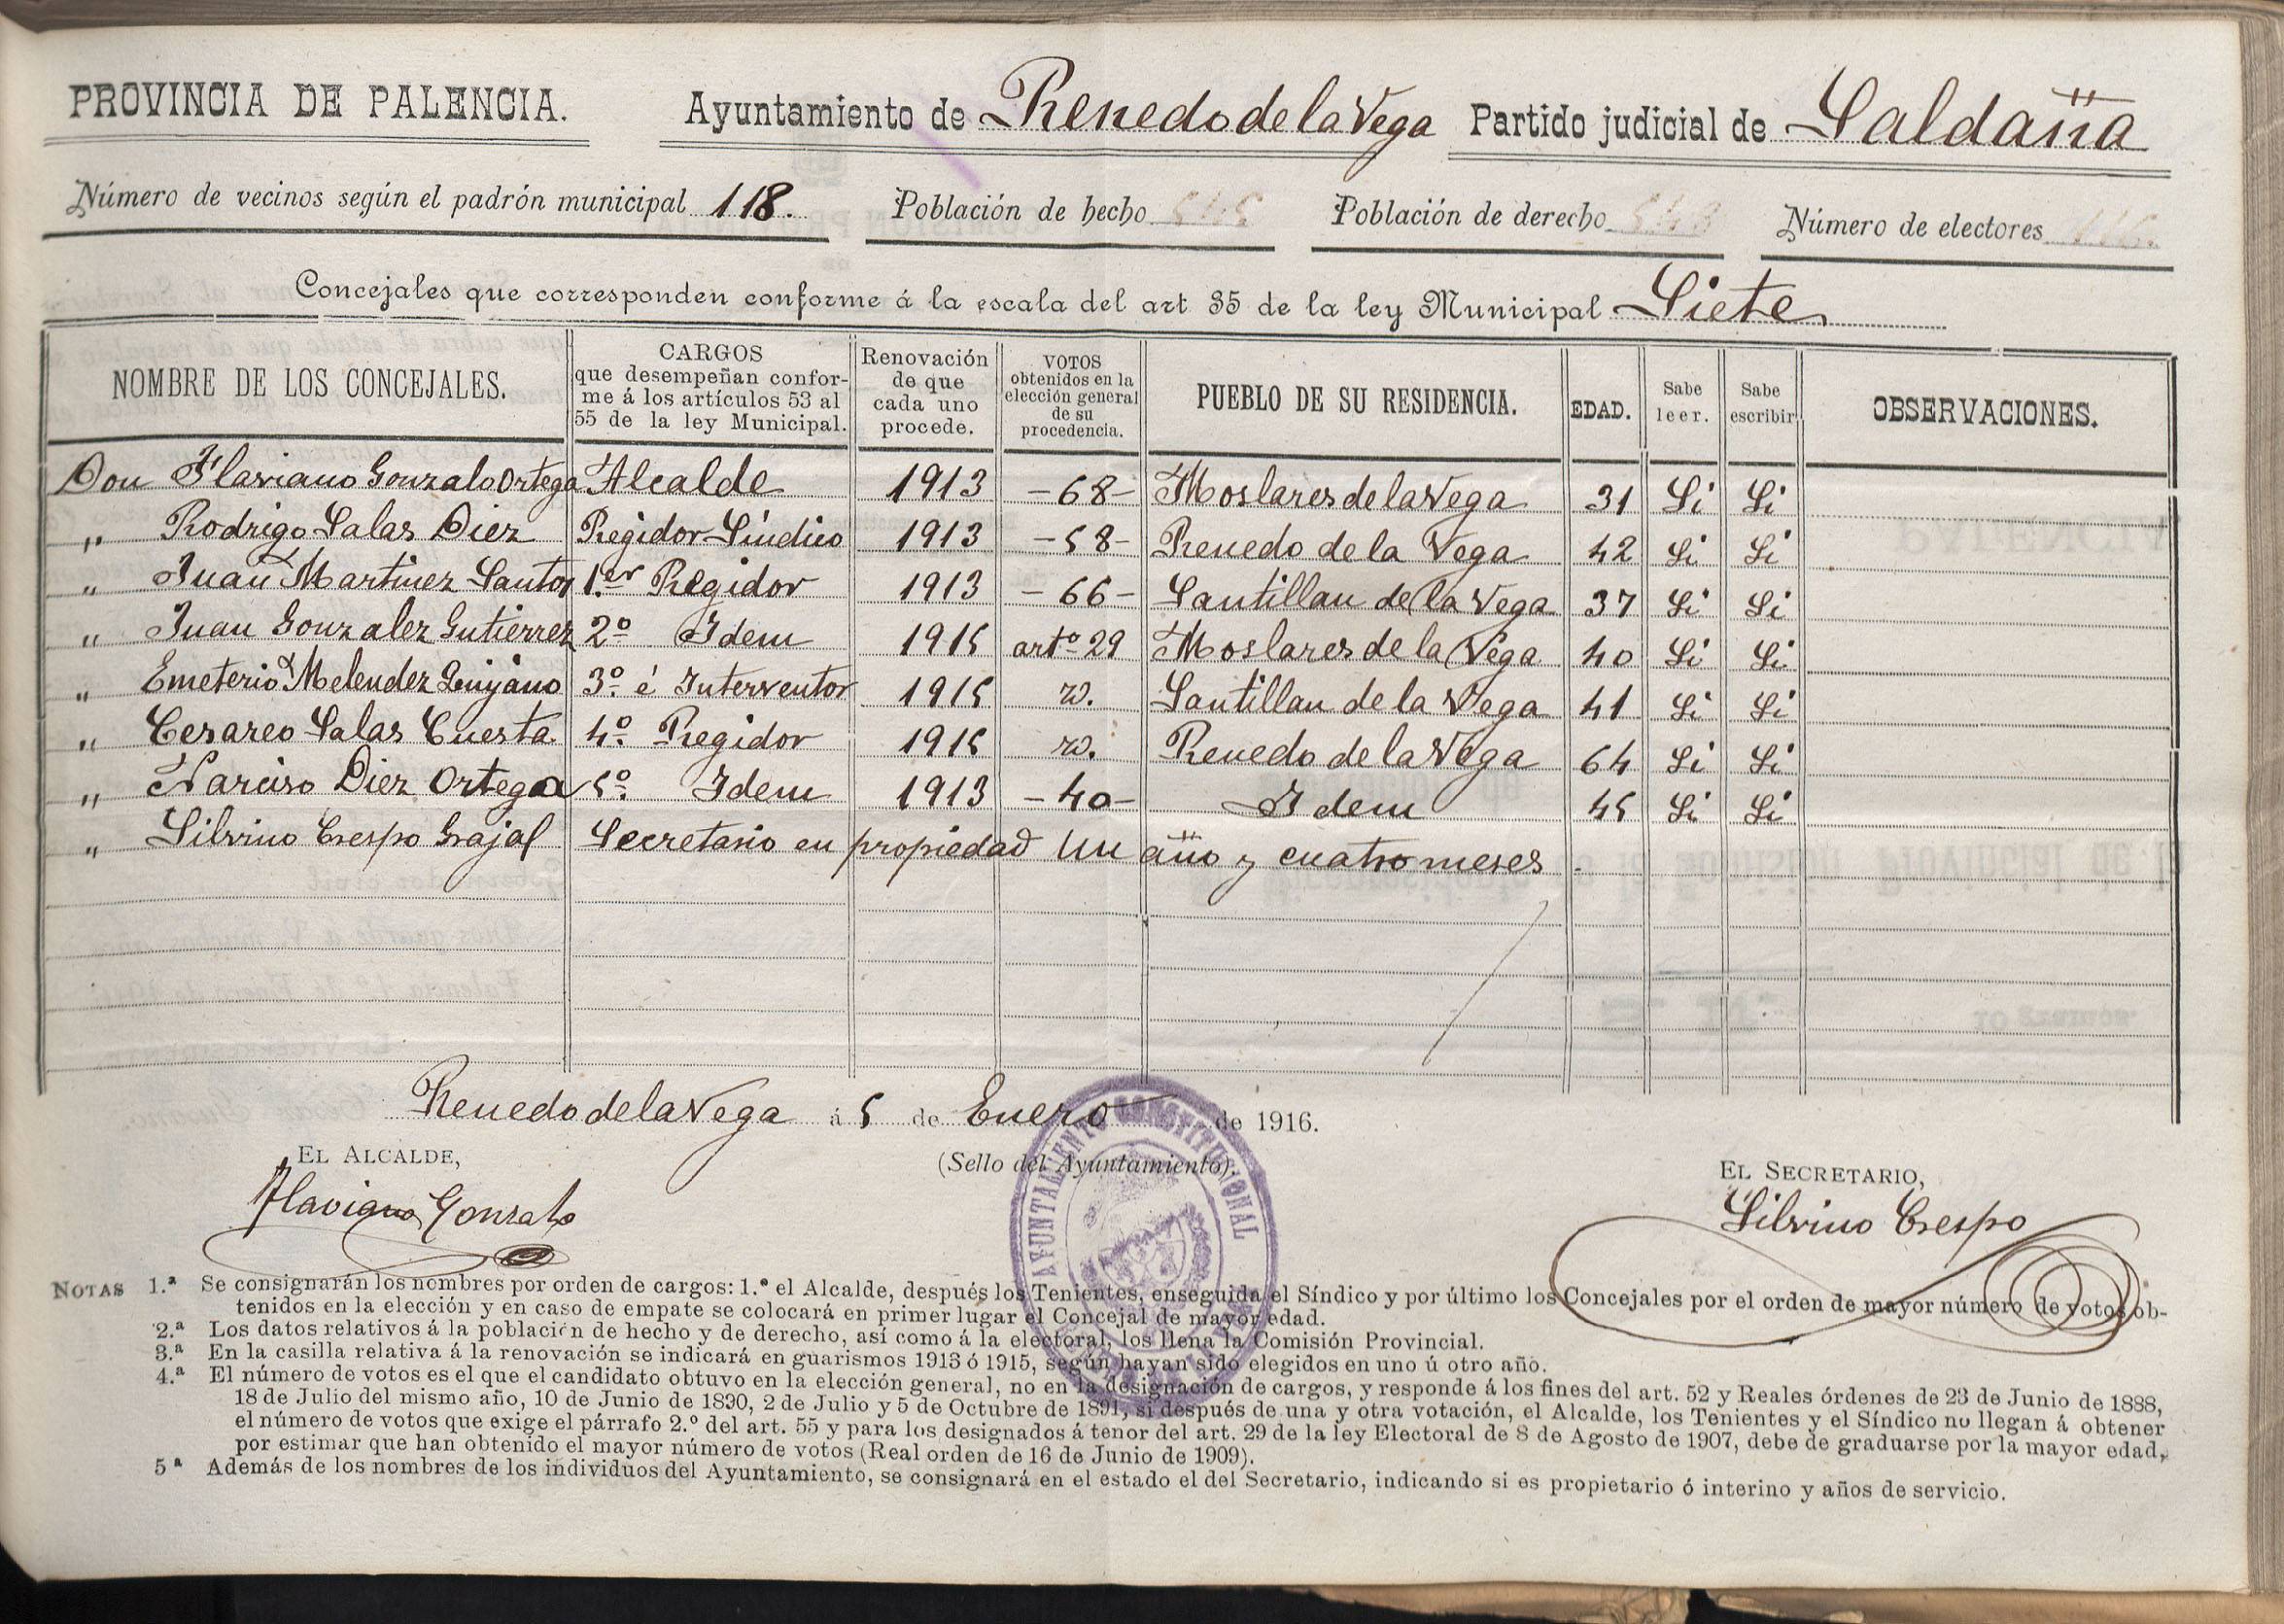 PROVINCIA DE PALENCIA. Ayuntamiento de Renedo de la Vega Partido judicial de Saldaña
Número de vecinos según el padrón municipal 118. Población de hecho 545 Población de derecho 543 Número de electores 116.
Concejales que corresponden conforme á la escala del art 35 de la ley Municipal Siete
NOMBRE DE LOS CONCEJALES. CARGOS que desempeñan conforme á los artículos 53 al 55 de la ley Municipal. Renovación de que cada uno procede. VOTOS obtenidos en la elección general de su procedencia. PUEBLO DE SU RESIDENCIA. EDAD. Sabe leer. Sabe escribir OBSERVACIONES.
Don Flaviano Gonzalo Ortega Alcalde 1913 -68- Moslares de la Vega 31 Si Si
" Rodrigo Salas Diez Regidor Síndico 1913 -58- Renedo de la Vega 42 Si Si
" Juan Martinez Santos 1.er Regidor 1913 -66- Santillan de la Vega 37 Si Si
" Juan Gonzalez Gutierrez 2º Idem 1915 artº 29 Moslares de la Vega 40 Si Si
" Emeterio Melendez 3º é Interventor 1915 Santillan de la Vega 41 Si Si
" Cesareo Salas Cuesta 4º Regidor 1915 Renedo de la Vega 64 Si Si
" Narciso Diez Ortega 5º Idem 1913 -40- Idem 45 Si Si
" Silvino Crespo Grajal Secretario en propiedad Un año y cuatro meses
Renedo de la Vega á 5 de Enero de 1916.
EL ALCALDE, (Sello del Ayuntamiento). EL SECRETARIO,
Flaviano Gonzalo Silvino Crespo
AYUNTAMIENTO CONSTITUCIONAL
NOTAS 1.ª Se consignarán los nombres por orden de cargos: 1.º el Alcalde, después los Tenientes, enseguida el Síndico y por último los Concejales por el orden de mayor número de votos ob-
tenidos en la elección y en caso de empate se colocará en primer lugar el Concejal de mayor edad.
2.ª Los datos relativos á la población de hecho y de derecho, así como á la electoral, los llena la Comisión Provincial.
3.ª En la casilla relativa á la renovación se indicará en guarismos 1913 ó 1915, según hayan sido elegidos en uno ú otro año.
4.ª El número de votos es el que el candidato obtuvo en la elección general, no en la designación de cargos, y responde á los fines del art. 52 y Reales órdenes de 23 de Junio de 1888,
18 de Julio del mismo año, 10 de Junio de 1890, 2 de Julio y 5 de Octubre de 1891, si después de una y otra votación, el Alcalde, los Tenientes y el Síndico no llegan á obtener
el número de votos que exige el párrafo 2.º del art. 55 y para los designados á tenor del art. 29 de la ley Electoral de 8 de Agosto de 1907, debe de graduarse por la mayor edad,
por estimar que han obtenido el mayor número de votos (Real orden de 16 de Junio de 1909).
5ª Además de los nombres de los individuos del Ayuntamiento, se consignará en el estado el del Secretario, indicando si es propietario ó interino y años de servicio.